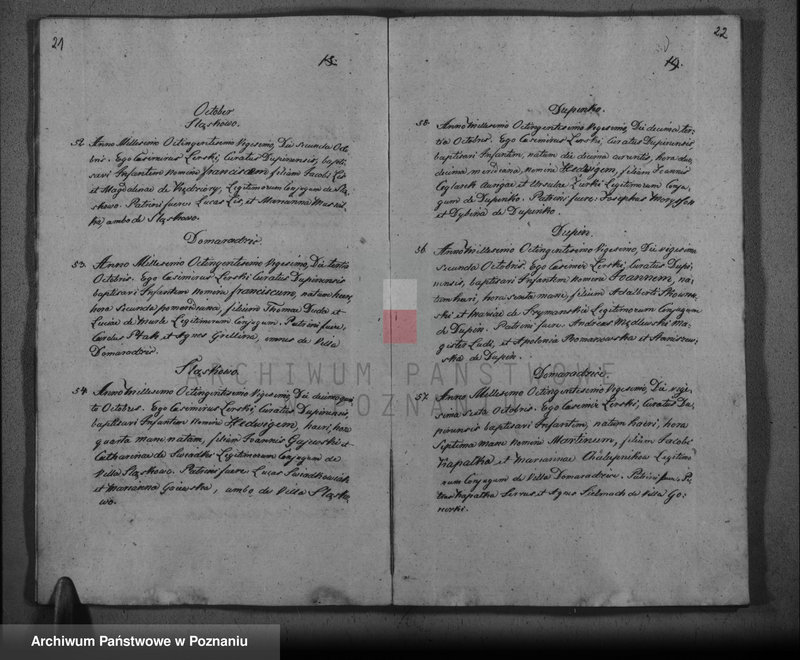 21
18.
October
Słąskowo.
52. Anno Millesimo Octingentesimo Vigesimo, Die Secunda Oc-
bris. Ego Casimirus Lerski, Curatus Dupinensis, bapti-
savi Infantem nomine Franciscam filiam Jacobi Lis
et Magdalenae de Legitimorum Conjugum de Słą-
skowo. Patrini fuere, Lucas Lis, et Marianna
ambo de Słąskowo.
Domaradzic.
53. Anno Millesimo Octingentesimo Vigesimo, Die tertia
Octobris. Ego Casimirus Lerski Curatus Dupinensis
baptisavi Infantem nomine Franciscum, natum heri,
hora Secunda pomeridiana, filium Thomae Duda et
Luciae de Legitimorum Conjugum. Patrini fuere,
Carolus Ptak et Agnes omnes de Villa
Domaradzic.
Słąskowo.
54. Anno Millesimo Octingentesimo Vigesimo, Die decima quin-
ta Octobris. Ego Casimirus Lerski, Curatus Dupinensis,
baptisavi Infantem nomine Hedvigem, heri, hora
quarta mane natam, filiam Joannis Gajewski et
Catharinae de Legitimorum Conjugum de
Villa Słąskowo. Patrini fuere Lucas
et Marianna ambo de Villa Słąsko
wo.
22
19.
Dupinko.
Anno Millesimo Octingentesimo Vigesimo, Die decima ter-
tia Octobris. Ego Casimirus Lerski, Curatus Dupinensis
baptisavi Infantem, natam die decima currentis, hora duo
decima meridiana, nomine Hedvigem, filiam Joannis
Cęglarek Aurigae et Ursulae Legitimorum Conju-
gum de Dupinko. Patrini fuere: Josephus
et de Dupinko.
Dupin.
56. Anno Millesimo Octingentesimo Vigesimo, Die vigesima
Secunda Octobris Ego Casimir Lerski, Curatus Dupi-
nensis, baptisavi Infantem nomine Joannem, na-
tum heri, hora sexta mane, filium Adalberti
ski et Mariae de Szymańska Legitimorum Conjugum
de Dupin. Patrini fuere Andreas Ma-
gister Ludi, et Apolonia
ska de Dupin.
Domaradzic.
57. Anno Millesimo Octingentesimo Vigesimo, Die vige-
sima Sexta Octobris. Ego Casimir Lerski, Curatus Du-
pinensis baptisavi Infantem, natum heri, hora
Septima mane nomine Martinum, filium Jacobi
Krapatka et Mariannae Legitimo
rum Conjugum de Villa Domaradzic. Patrini fuere, Pe
trus Krapatka Servus, et Agnes de Villa Go-
ARCHIWUM PAŃSTWOWE
POZNAŃ
Archiwum Państwowe w Poznaniu